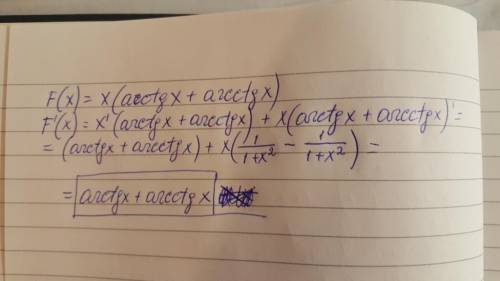 F(x) = x(arctgx + arcctgx)
F'(x) = x'(arctgx + arcctgx) + x(arctgx + arcctgx)' =
= (arctgx + arcctgx) + x(1/(1+x²) - 1/(1+x²)) =
= arctgx + arcctgx